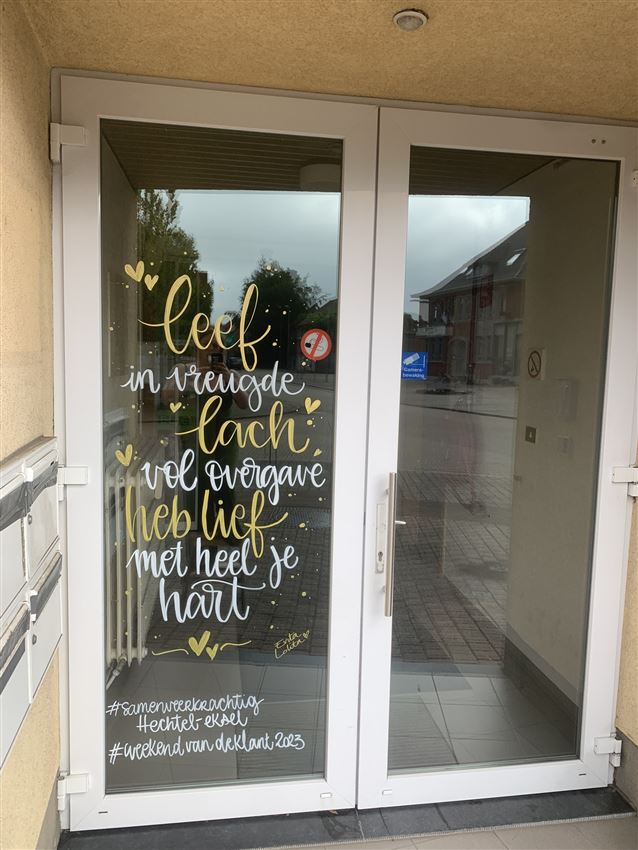 leef
in vreugde
lach
vol overgave
heb lief
met heel je
hart
Enta
Lolita
#samenveerkrachtig
Hechtel-eksel
#weekend van de klant 2023
Camera-
bewaking